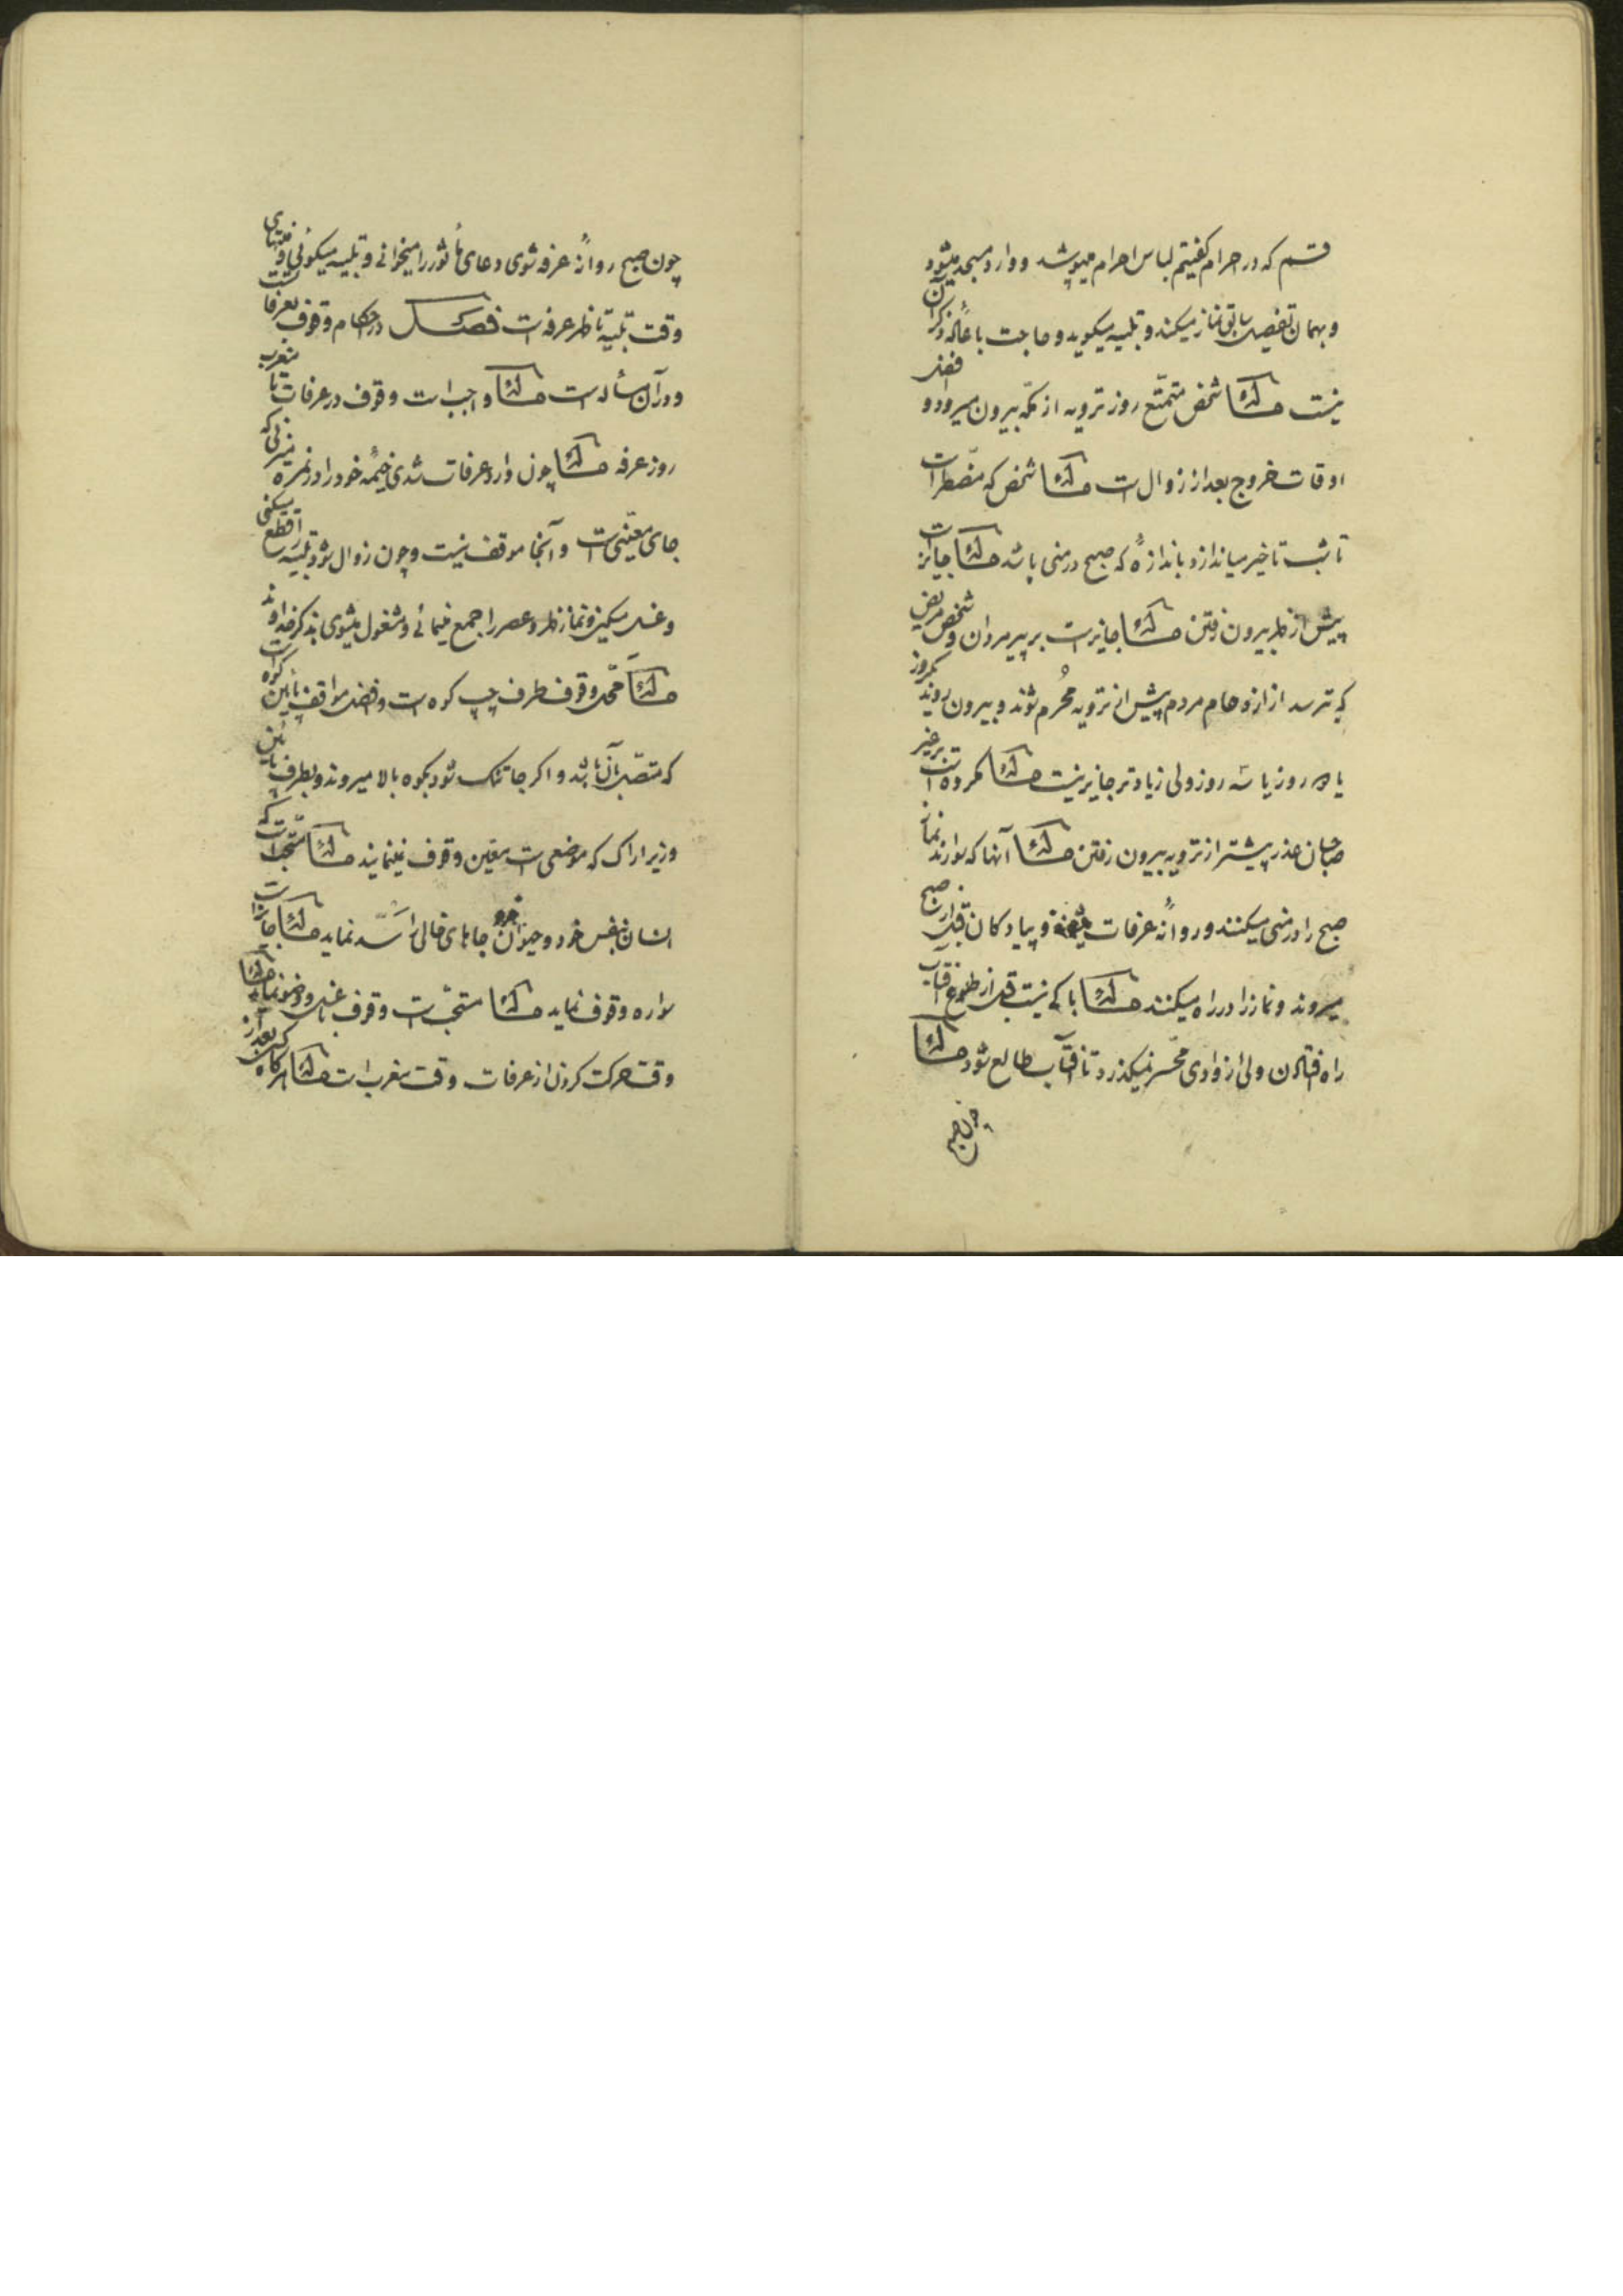 قسم که در احرام گفتیم لباس احرام میپوشد و وارد مسجد میشود
و بهمان تفصیل سابق نماز میکند و تلبیه میگوید و حاجت باعادهٔ ذکر آن
نیست مسئله شخص متمتّع روز ترویه از مکّه بیرون میرود و افضل
اوقات خروج بعد از زوال است مسئله شخص که مضطر است
تا شب تاخیر میاندازد باندازهٔ که صبح در منی باشد مسئله جایز است
پیش از ظهر بیرون رفتن مسئله جایز است بر پیر مردان و شخص مریض
که ترسد از ازدحام مردم پیش از ترویه مُحرم شوند و بیرون روند یکروز
یا دو روز یا سه روز ولی زیادتر جایز نیست مسئله مکروه است بر غیر
صاحبان عذر پیشتر از ترویه بیرون رفتن مسئله آنها که سوارند نماز
صبح را در منی میکنند و روانهٔ عرفات میشوند و پیادگان قبل از صبح
میروند و نماز را در راه میکنند مسئله باکی نیست قبل از طلوع آفتاب
راه افتادن ولی از وادی محسّر نمیگذرد تا آفتاب طالع شود مسئله
چون صبح
چون صبح روانهٔ عرفه شوی دعای مأثور را میخوانی و تلبیه میگوئی و منتهای
وقت تلبیه تا ظهر عرفه است فصل در احکام وقوف بعرفات
و در آن مسأله است مسئله واجب است وقوف در عرفات تا مغرب
روز عرفه مسئله چون وارد عرفات شدی خیمهٔ خود را در نمره میزنی که
جای معیّنی است و آنجا موقف نیست و چون زوال شود تلبیه را قطع میکنی
و غسل میکنی و نماز ظهر و عصر را جمع مینمائی و مشغول میشوی بذکر خداوند
مسئله محلّ وقوف طرف چپ کوه است و افضل مواقف پائین کوه است
که متصل بآن باشد و اگر جا تنگ شود بکوه بالا میروند و بطرف پائین
و زیر اراک که موضعی است معین وقوف نمینمایند مسئله مستحبّ است که
انسان بنفس خود و حیوان خود جاهای خالی را سدّ نماید مسئله جایز است
سواره وقوف نماید مسئله مستحبّ است وقوف با غسل و وضو نماید مسئله
وقت حرکت کردن از عرفات وقت مغرب است مسئله هر گاه کسی بعد از